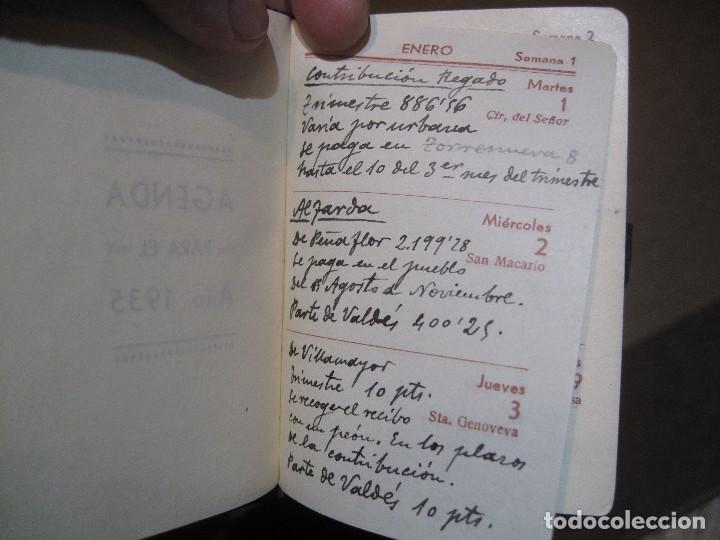 AGENDA
PARA EL
Año 1935
Semana 2
ENERO
Semana 1
Martes
1
Cir. del Señor
Contribución Regado
Trimestre 886'56
Varía por urbana
se paga en Torrenueva 8
hasta el 10 del 3er mes del trimestre
Miércoles
2
San Macario
Alfarda
de Peñaflor 2.199'78
se paga en el pueblo
del 15 Agosto a Noviembre.
Parte de Valdés 400'25.
Jueves
3
Sta. Genoveva
de Villamayor
trimestre 10 pts.
se recoge el recibo
con un peón. En los plazos
de la contribución.
Parte de Valdés 10 pts.
todocoleccion